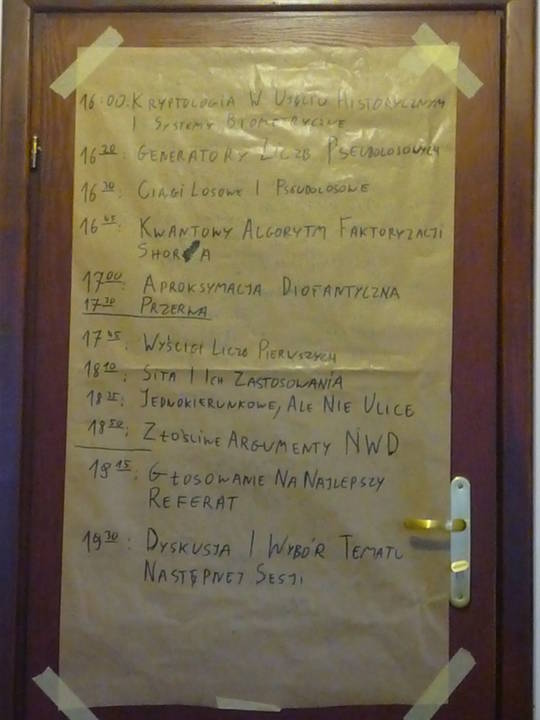 16:00: KRYPTOLOGIA W UJĘCIU HISTORYCZNYM
I SYSTEMY BIOMETRYCZNE
16 20: GENERATORY LICZB PSEUDOLOSOWYCH
16 30: CIĄGI LOSOWE I PSEUDOLOSOWE
16 45: KWANTOWY ALGORYTM FAKTORYZACJI
SHORA
17 00: APROKSYMACJA DIOFANTYCZNA
17 30 PRZERWA
17 45: WYŚCIGI LICZB PIERWSZYCH
18 10: SITA I ICH ZASTOSOWANIA
18 35: JEDNOKIERUNKOWE, ALE NIE ULICE
18 50: ZŁOŚLIWE ARGUMENTY NWD
19 15: GŁOSOWANIE NA NAJLEPSZY
REFERAT
19 30: DYSKUSJA I WYBÓR TEMATU
NASTĘPNEJ SESJI